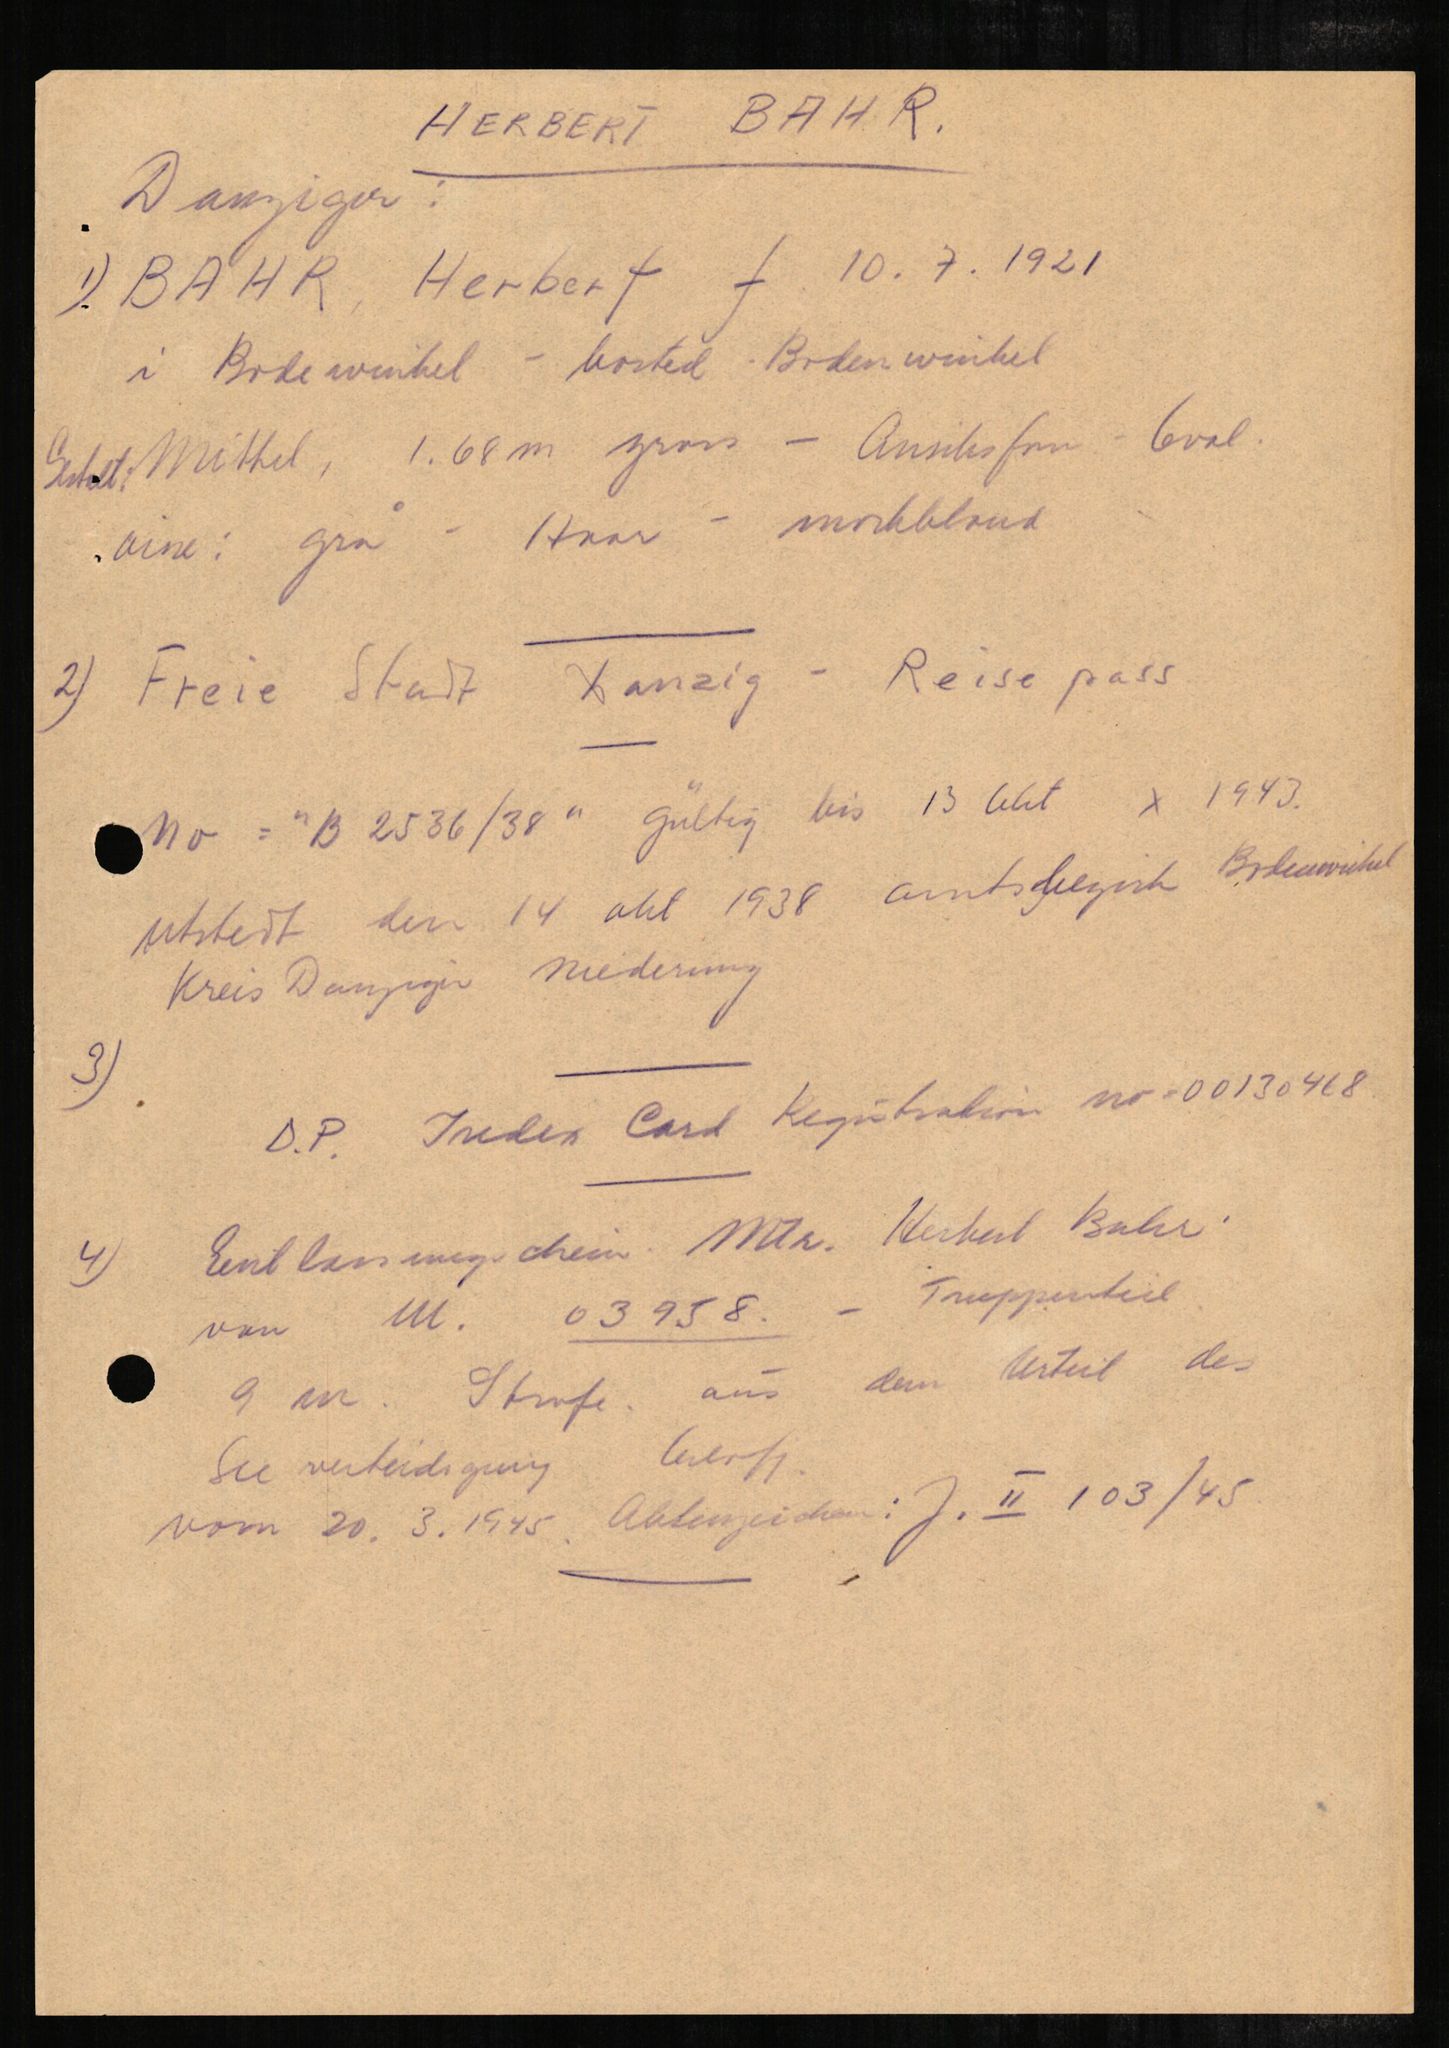 HERBERT BAHR.
Danziger:
1) BAHR, Herbert f 10.7.1921
i Bodewinkel - bosted Bodenwinkel
Gestalt: Mittel, 1.68 m gross - Ansiktsform - Oval.
öine: grå - Haar - morkblond
2) Freie Stadt Danzig - Reisepass
No = "B 2536/38" Gültig bis 13 Okt x 1943.
utstedt den 14 okt 1938 amtsbezirk Bodenwinkel
Kreis Danziger Niederung
3)
D.P. Index Card Registration no = 00130468
4) Entlassungschein. Mtr. Herbert Bahr.
von M. 03958. - Truppenteil
9 m. Strafe. aus dem Urteil des
See verteidigung
vom 20.3.1945. Aktenzeichen: J. II 103/45